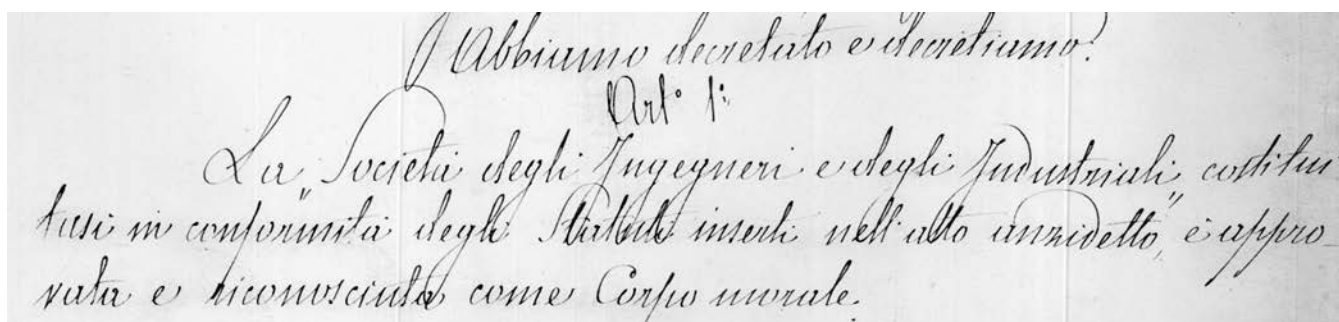 Abbiamo decretato e decretiamo:
Art.° 1°:
La Società degli Ingegneri e degli Industriali, costitui
tasi in conformità degli Statuti inserti nell'atto anzidetto, è appro-
vata e riconosciuta come Corpo morale.